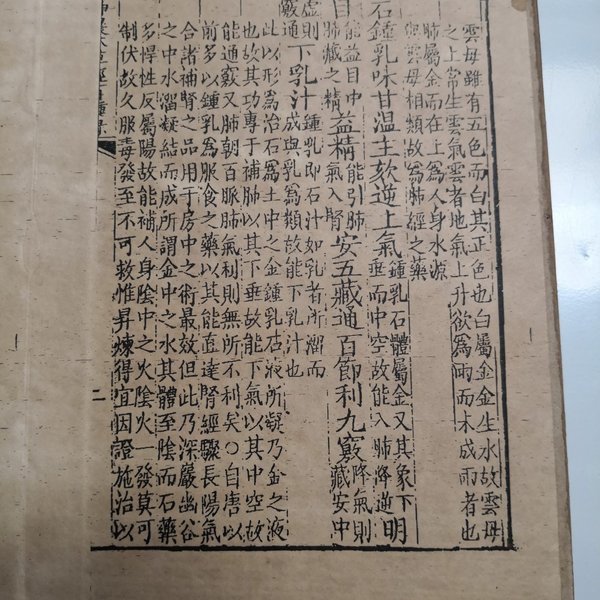 雲母雖有五色而白其正色也白屬金金生水故雲母
之上常生雲氣雲者地氣上升欲為雨而未成雨者也
肺屬金而在上為人身水源
與雲母相類故為肺經之藥
石鍾乳味甘溫主欬逆上氣鍾乳石體屬金又其象下垂而中空故能入肺降逆明
目能益目中肺藏之精益精能引肺氣入腎安五藏通百節利九竅降氣則藏安中
虛則竅通下乳汁鍾乳即石汁如乳者所溜而成與乳為類故能下乳汁也
此以形為治石為土中之金鍾乳石液所凝乃金之液
也故其功專于補肺以其下垂故能下氣以其中空故
能通竅又肺朝百脈肺氣利則無所不利矣○自唐以
前多以鍾乳為服食之藥以其能直達腎經驟長陽氣
合諸補腎之品用于房中之術最效但此乃深巖幽谷
之中水溜凝結而成所謂金中之水其體至陰而石藥
多悍性反屬陽故能補人身陰中之火陰火一發莫可
制伏故久服毒發至不可救惟昇煉得宜因證施治以
二